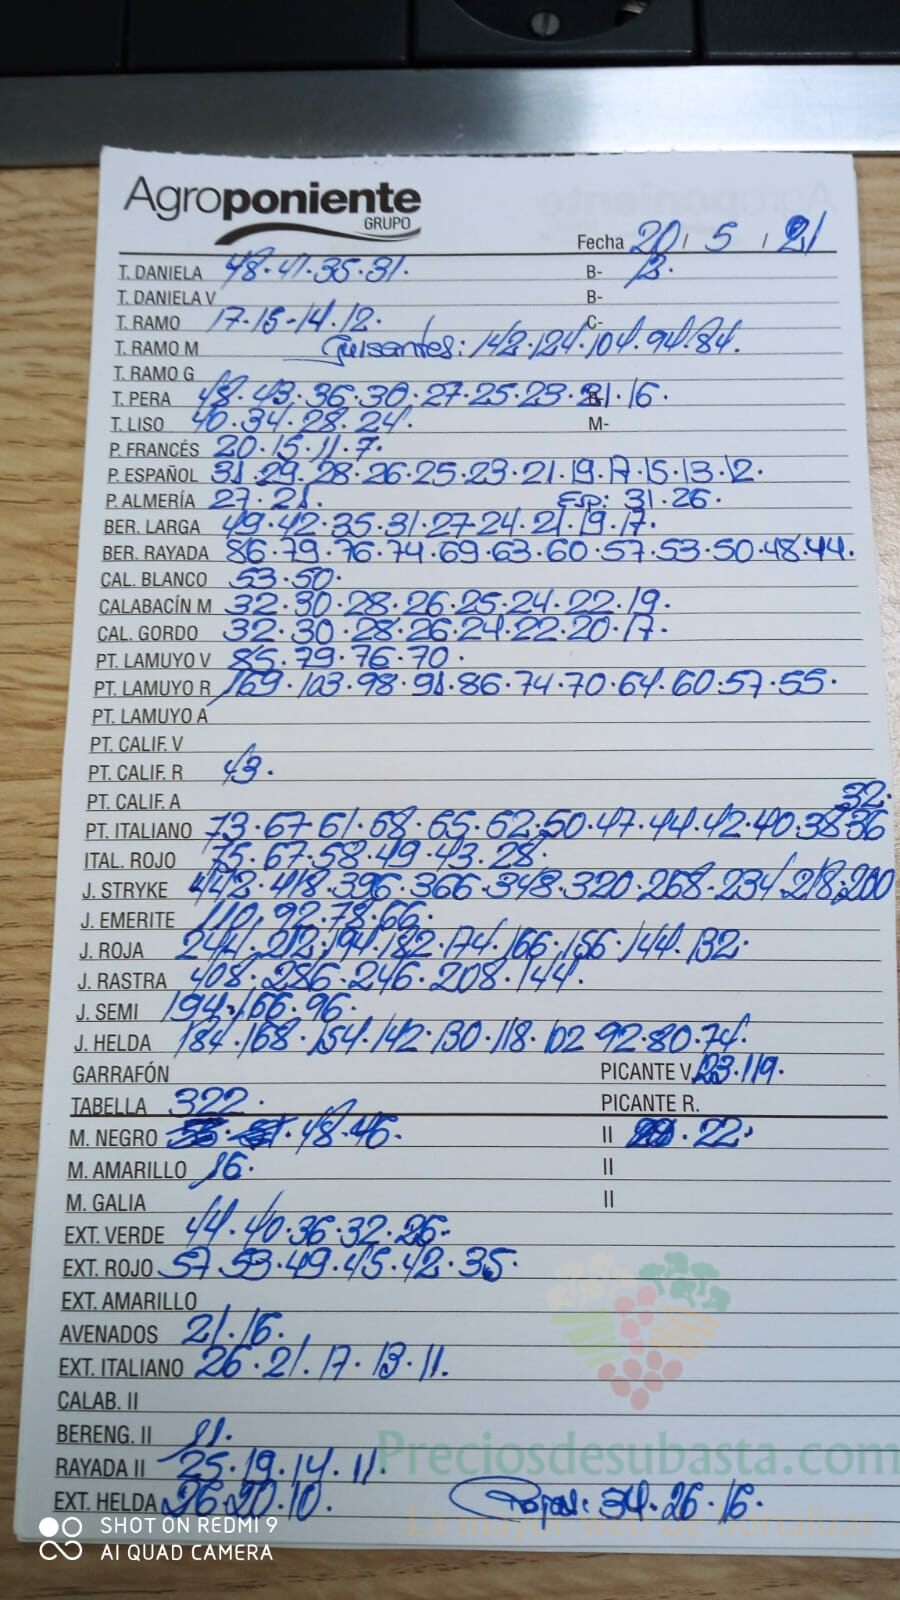 Agroponiente
GRUPO
Fecha 20 / 5 / 21
T. DANELA 48.41.35.31. B- 13.
T. DANIELA V B-
T. RAMO 17.15-14.12. C-
T. RAMO M Guisantes: 142.124.104.94.84.
T. RAMO G
T. PERA 48.43.36.30.27.25.23.21.16.
T. LISO 40.34.28.24. M-
P. FRANCÉS 20.15.11.7.
P. ESPAÑOL 31.29.28.26.25.23.21.19.17.15.13.12.
P. ALMERÍA 27.21. Esp: 31.26.
BER. LARGA 49.42.35.31.27.24.21.19.17.
BER. RAYADA 86.79.76.74.69.63.60.57.53.50.48.44.
CAL. BLANCO 53.50.
CALABACÍN M 32.30.28.26.25.24.22.19.
CAL. GORDO 32.30.28.26.24.22.20.17.
PT. LAMUYO V 85.79.76.70.
PT. LAMUYO R 169.103.98.91.86.74.70.64.60.57.55.
PT. LAMUYO A
PT. CALIF. V
PT. CALIF. R 43.
PT. CALIF. A 32.
PT. ITALIANO 73.67.61.68.65.62.50.47.44.42.40.38.36
ITAL. ROJO 75.67.58.49.43.28.
J. STRYKE 442.418.396.366.348.320.268.234.218.200
J. EMERITE 110.92.78.66.
J. ROJA 244.212.194.182.174.166.156.144.132.
J. RASTRA 408.286.246.208.144.
J. SEMI 194.166.96.
J. HELDA 184.168.154.142.130.118.102 92.80.74.
GARRAFÓN PICANTE V. 123.119.
TABELLA 322. PICANTE R.
M. NEGRO 48.46. II 22.
M. AMARILLO 16. II
M. GALIA II
EXT. VERDE 44.40.36.32.26-
EXT. ROJO 57.53.49.45.42.35.
EXT. AMARILLO
AVENADOS 21.16.
EXT. ITALIANO 26.21.17.13.11.
CALAB. II
BERENG. II 11.
RAYADA II 25.19.14.11.
EXT. HELDA 26.20.10. 34.26.16.
Preciosdesubasta.com
La mayor web de hortalizas
SHOT ON REDMI 9
AI QUAD CAMERA